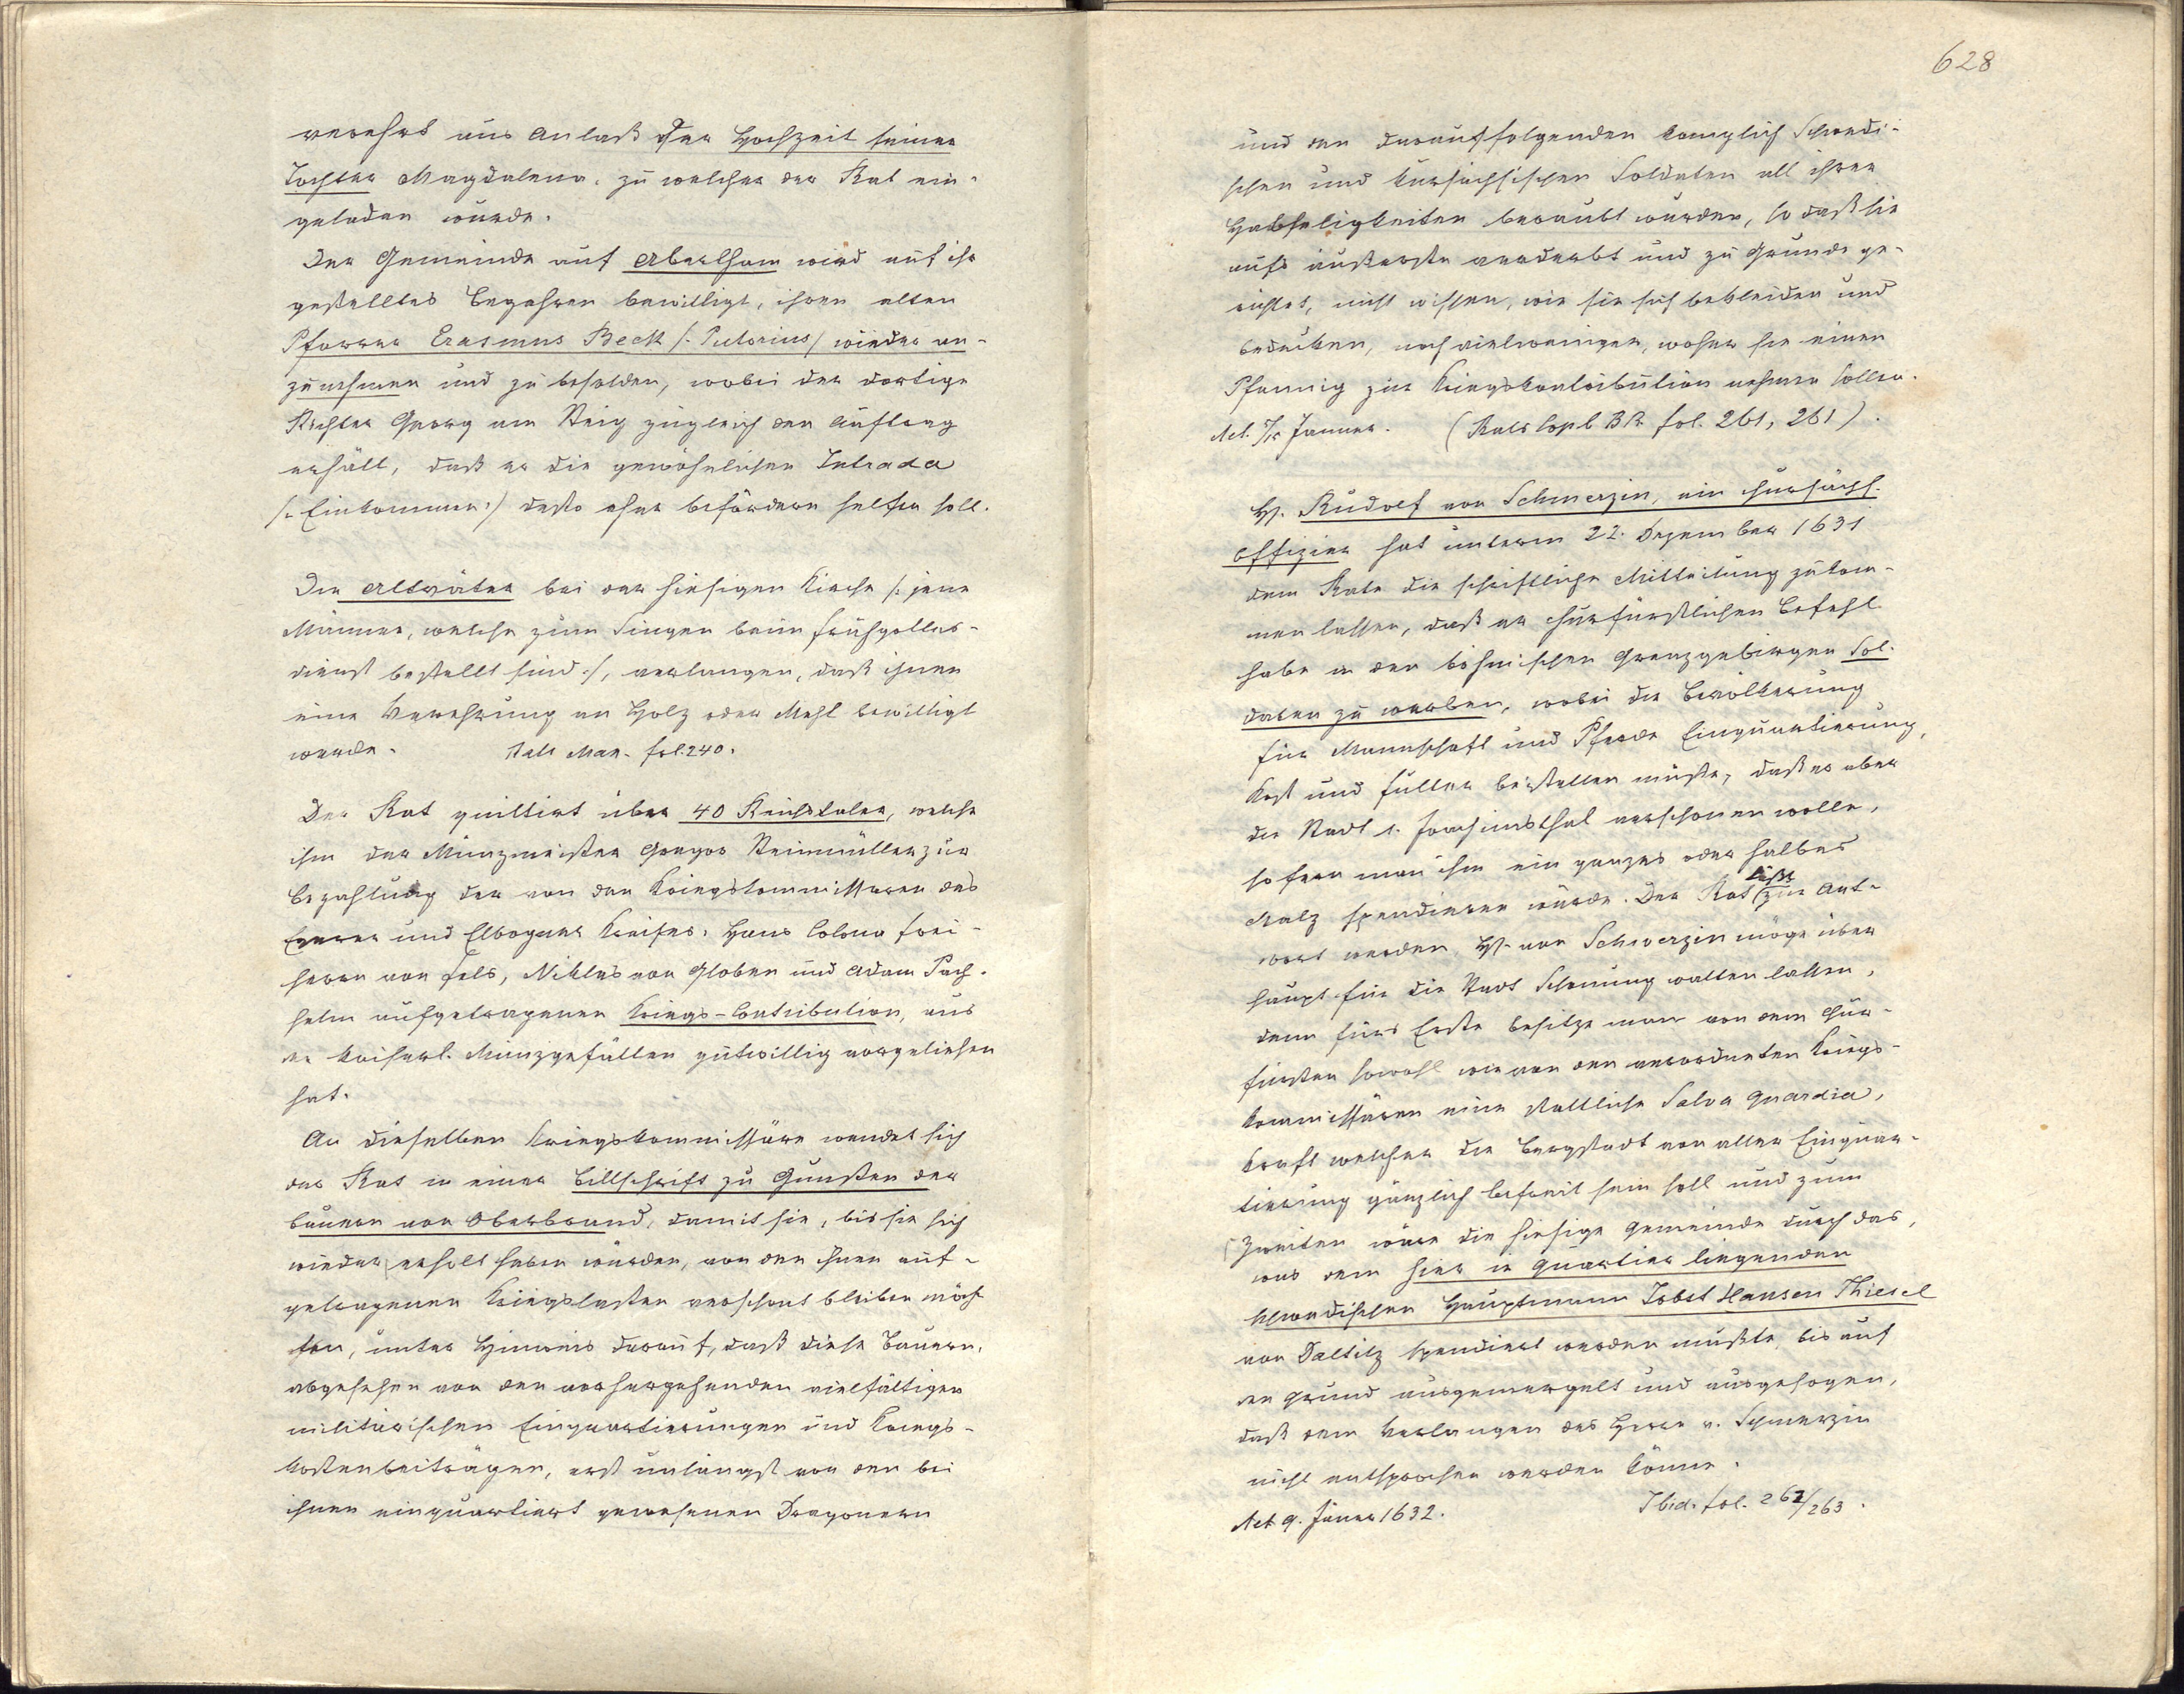 verehrt aus Anlaß der Hochzeit seiner
Tochter Magdalena, zu welcher der Rat ein-
geladen wurde.
Der Gemeinde auf Abertham wird auf ihr
gestelltes Begehren bewilligt, ihren alten
Pfarrer Erasmus Beck /: Pistorius / wieder an-
zunehmen und zu besolden, wobei der dortige
Richter Georg am Steig zugleich den Auftrag
erhält, daß er die gewöhnlichen Intrada
/: Einkommen :/ desto eher befördern helfen soll.
Die Altväter bei der hiesigen Kirche /: jene
Männer, welche zum Singen beim Frühgottes-
dienst bestellt sind :/, verlangen, daß ihnen
eine Verehrung an Holz oder Mehl bewilligt
werde. Rats Man. fol. 240.
Der Rat quittirt über 40 Reichstaler, welche
ihm der Münzmeister Gregor Steinmüller zur
Bezahlung der von den Kriegskommissaren des
Egerer und Elbogner Kreises, Hans Colona Frei-
herrn von Fels, Niklas von Globen und Adam Pach-
helm aufgetragenen Kriegs-Contribution, aus
den kaiserl. Münzgefällen gutwillig vorgeliehen
hat.
An dieselben Kriegskommissäre wendet sich
der Rat in einer Bittschrift zu Gunsten der
Bauern von Oberbrand, damit sie, bis sie sich
wieder erholt haben würden, von den ihnen auf-
getragenen Kriegslasten verschont bleiben möch-
ten, unter Hinweis darauf, daß diese Bauern,
abgesehen von den vorhergehenden vielfältigen
militärischen Einquartierungen und Kriegs-
kostenbeiträgen, erst unlängst von den bei
ihnen einquartiert gewesenen Dragonern
628
und den darauffolgenden königlich Schwedi-
schen und kursächsischen Soldaten all ihrer
Habseligkeiten beraubt wurden, so daß sie
aufs äußerste verderbt und zu Grunde ge-
richtet, nicht wissen, wie sie sich bekleiden und
bedecken, noch vielweniger, woher sie einen
Pfennig zur Kriegskontribution nehmen sollen.
Act. Jänner. (Rats Copl B fol. 261, 261).
H. Rudolf von Schmerzin, ein chursächs.
Offizier hat unterm 22. Dezember 1631
dem Rate die schriftliche Mitteilung zukom-
men lassen, daß er churfürstlichen Befehl
habe in den böhmischen Grenzgebirgen Sol-
daten zu werben, wobei die Bevölkerung
für Mannschaft und Pferde Einquartierung,
Kost und Futter beistellen müßte, daß er aber
die Stadt S. Joachimsthal verschonen wolle,
sofern man ihm ein ganzes oder halbes
Malz spendieren würde. Der Rat läßt zur Ant-
wort werden, H. von Schmerzin möge über-
haupt für die Stadt Schonung walten lassen,
denn fürs Erste besitze man von dem Chur-
fürsten sowohl wie von den verordneten Kriegs-
kommissären eine stattliche Salva Guardia,
kraft welcher die Bergstadt von aller Einquar-
tierung gänzlich befreit sein soll und zum
Zweiten wäre die hiesige Gemeinde durch das,
was dem hier in Quartier liegenden
schwedischen Hauptmann Jobst Hansen Thiesel
von Daltitz spendiert werden mußte, bis auf
den Grund ausgemergelt und ausgesogen,
daß dem Verlangen des Herrn v. Schmerzin
nicht entsprochen werden könne.
Act 9. Jänner 1632. Ibid. fol. 262/263.